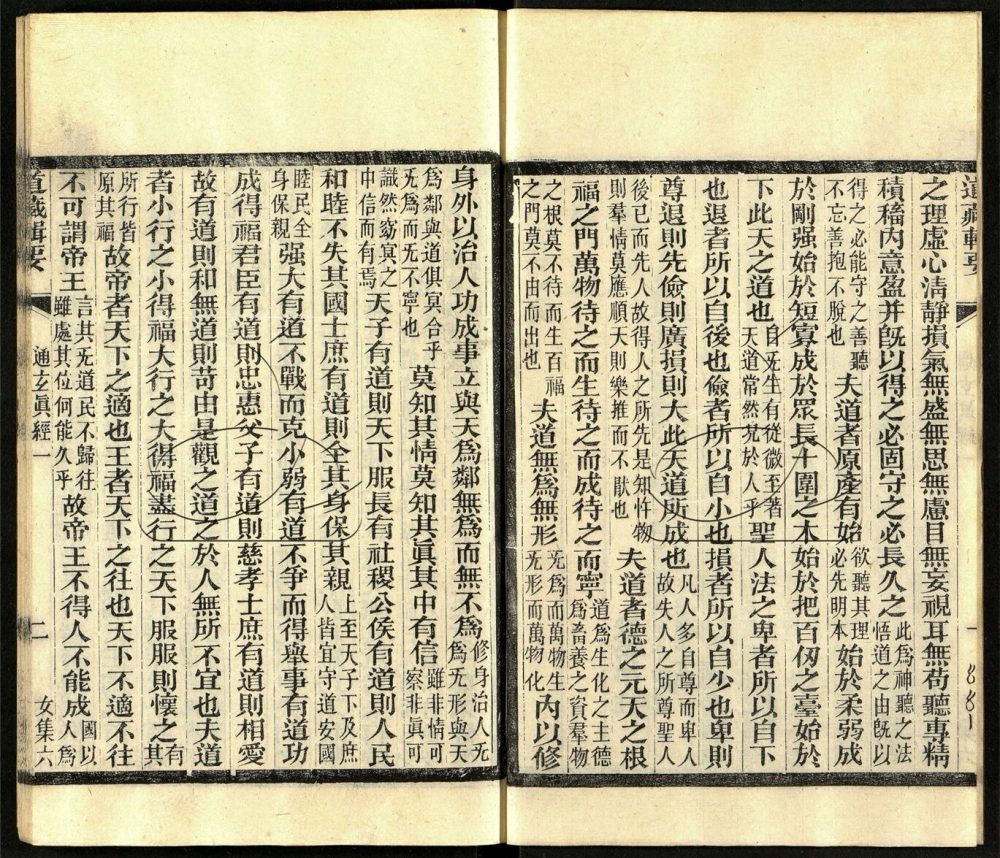 道藏輯要
一
之理虛心清靜損氣無盛無思無慮目無妄視耳無苟聽專精
積穡內意盈并旣以得之必固守之必長久之此為神聽之法悟道之由旣以
得之必能守之善聽不忘善抱不脫也夫道者原產有始欲聽其理必先明本始於柔弱成
於剛强始於短寡成於眾長十圍之木始於把百仞之臺始於
下此天之道也自无生有從微至著天道常然況於人乎聖人法之卑者所以自下
也退者所以自後也儉者所以自小也損者所以自少也卑則
尊退則先儉則廣損則大此天道所成也凡人多自尊而卑人故失人之所尊聖人
後已而先人故得人之所先是知忤物則羣情莫應順天則樂推而不猒也夫道者德之元天之根
福之門萬物待之而生待之而成待之而寧道為生化之主德為畜養之資羣物
之根莫不待而生百福之門莫不由而出也夫道無為無形无為而萬物生无形而萬物化內以修
身外以治人功成事立與天為鄰無為而無不為修身治人无為无形與天
為鄰與道俱冥合乎无為而无不寧也莫知其情莫知其眞其中有信雖非情可察非眞可
識然窈冥之中信而有焉天子有道則天下服長有社稷公侯有道則人民
和睦不失其國士庶有道則全其身保其親上至天子下及庶人皆宜守道安國
睦民全身保親强大有道不戰而克小弱有道不爭而得舉事有道功
成得福君臣有道則忠惠父子有道則慈孝士庶有道則相愛
故有道則和無道則苛由是觀之道之於人無所不宜也夫道
者小行之小得福大行之大得福盡行之天下服服則懷之有其
所行皆原其福故帝者天下之適也王者天下之往也天下不適不往
不可謂帝王言其无道民不歸往雖處其位何能久乎故帝王不得人不能成國以人為
道藏輯要
通玄眞經一
二
女集六